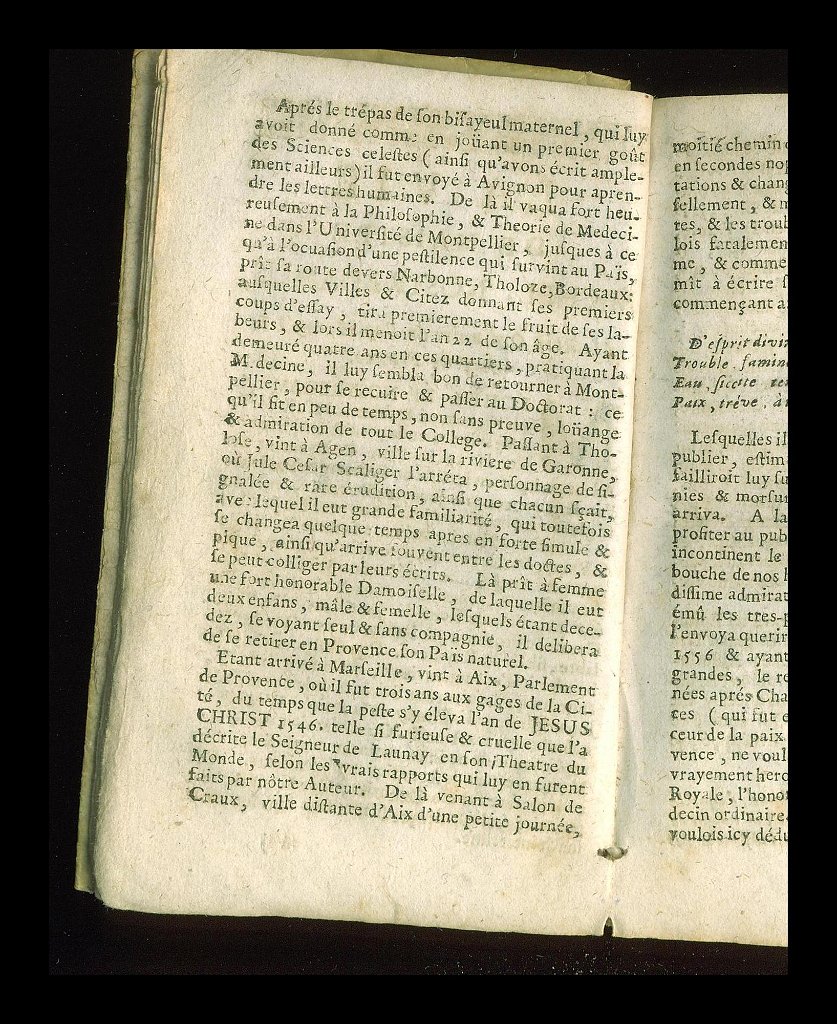 Aprés le trépas de ſon biſayeul maternel, qui luy
avoit donné comme en joüant un premier goût
des Sciences celeſtes (ainſi qu'avons écrit ample-
ment ailleurs) il fut envoyé à Avignon pour apren-
dre les lettres humaines. De là il vaqua fort heu-
reuſement à la Philoſophie, & Theorie de Medeci-
ne dans l'Univerſité de Montpellier, juſques à ce
qu'à l'ocuaſion d'une peſtilence qui ſurvint au Païs,
prît ſa route devers Narbonne, Tholoze, Bordeaux:
auſquelles Villes & Citez donnant ſes premiers
coups d'eſſay, tira premierement le fruit de ſes la-
beurs, & lors il menoit l'an 22 de ſon âge. Ayant
demeuré quatre ans en ces quartiers, pratiquant la
M decine, il luy ſembla bon de retourner à Mont-
pellier, pour ſe recuire & paſſer au Doctorat: ce
qu'il fit en peu de temps, non ſans preuve, loüange
& admiration de tout le College. Paſſant à Tho-
loſe, vint à Agen, ville ſur la riviere de Garonne,
où Jule Ceſar Scaliger l'arréta, perſonnage de ſi-
gnalée & rare érudition, ainſi que chacun ſçait,
ave: lequel il eut grande familiarité, qui toutefois
ſe changea quelque temps apres en forte ſimule &
pique, ainſi qu'arrive ſouvent entre les doctes, &
ſe peut colliger par leurs écrits. Là prît à femme
une fort honorable Damoiſelle, de laquelle il eut
deux enfans, mâle & femelle, leſquels étant dece-
dez, ſe voyant ſeul & ſans compagnie, il delibera
de ſe retirer en Provence ſon Païs naturel.
Etant arrivé à Marſeille, vint à Aix, Parlement
de Provence, où il fut trois ans aux gages de la Ci-
té, du temps que la peſte s'y éleva l'an de JESUS
CHRIST 1546. telle ſi furieuſe & cruelle que l'a
décrite le Seigneur de Launay en ſon Theatre du
Monde, ſelon les vrais rapports qui luy en furent
faits par nôtre Auteur. De là venant à Salon de
Craux, ville diſtante d'Aix d'une petite journée,
moitié chemin
en ſecondes nop
tations & chang
ſellement, & m
res, & les troub
lois fatalemen
me, & comme
mît à écrire ſ
commençant a
D'eſprit divin
Trouble, famine
Eau, ſiccité
Paix, tréve, à
Leſquelles il
publier, eſtim
failliroit luy ſu
nies & morſur
arriva. A la
profiter au pub
incontinent le
bouche de nos h
diſſime admirat
émû les tres-p
l'envoya querir
1556 & ayant
grandes, le re
nées aprés Cha
tes (qui fut e
ceur de la paix
vence, ne voul
vrayement hero
Royale, l'hono
decin ordinaire
voulois icy dédu